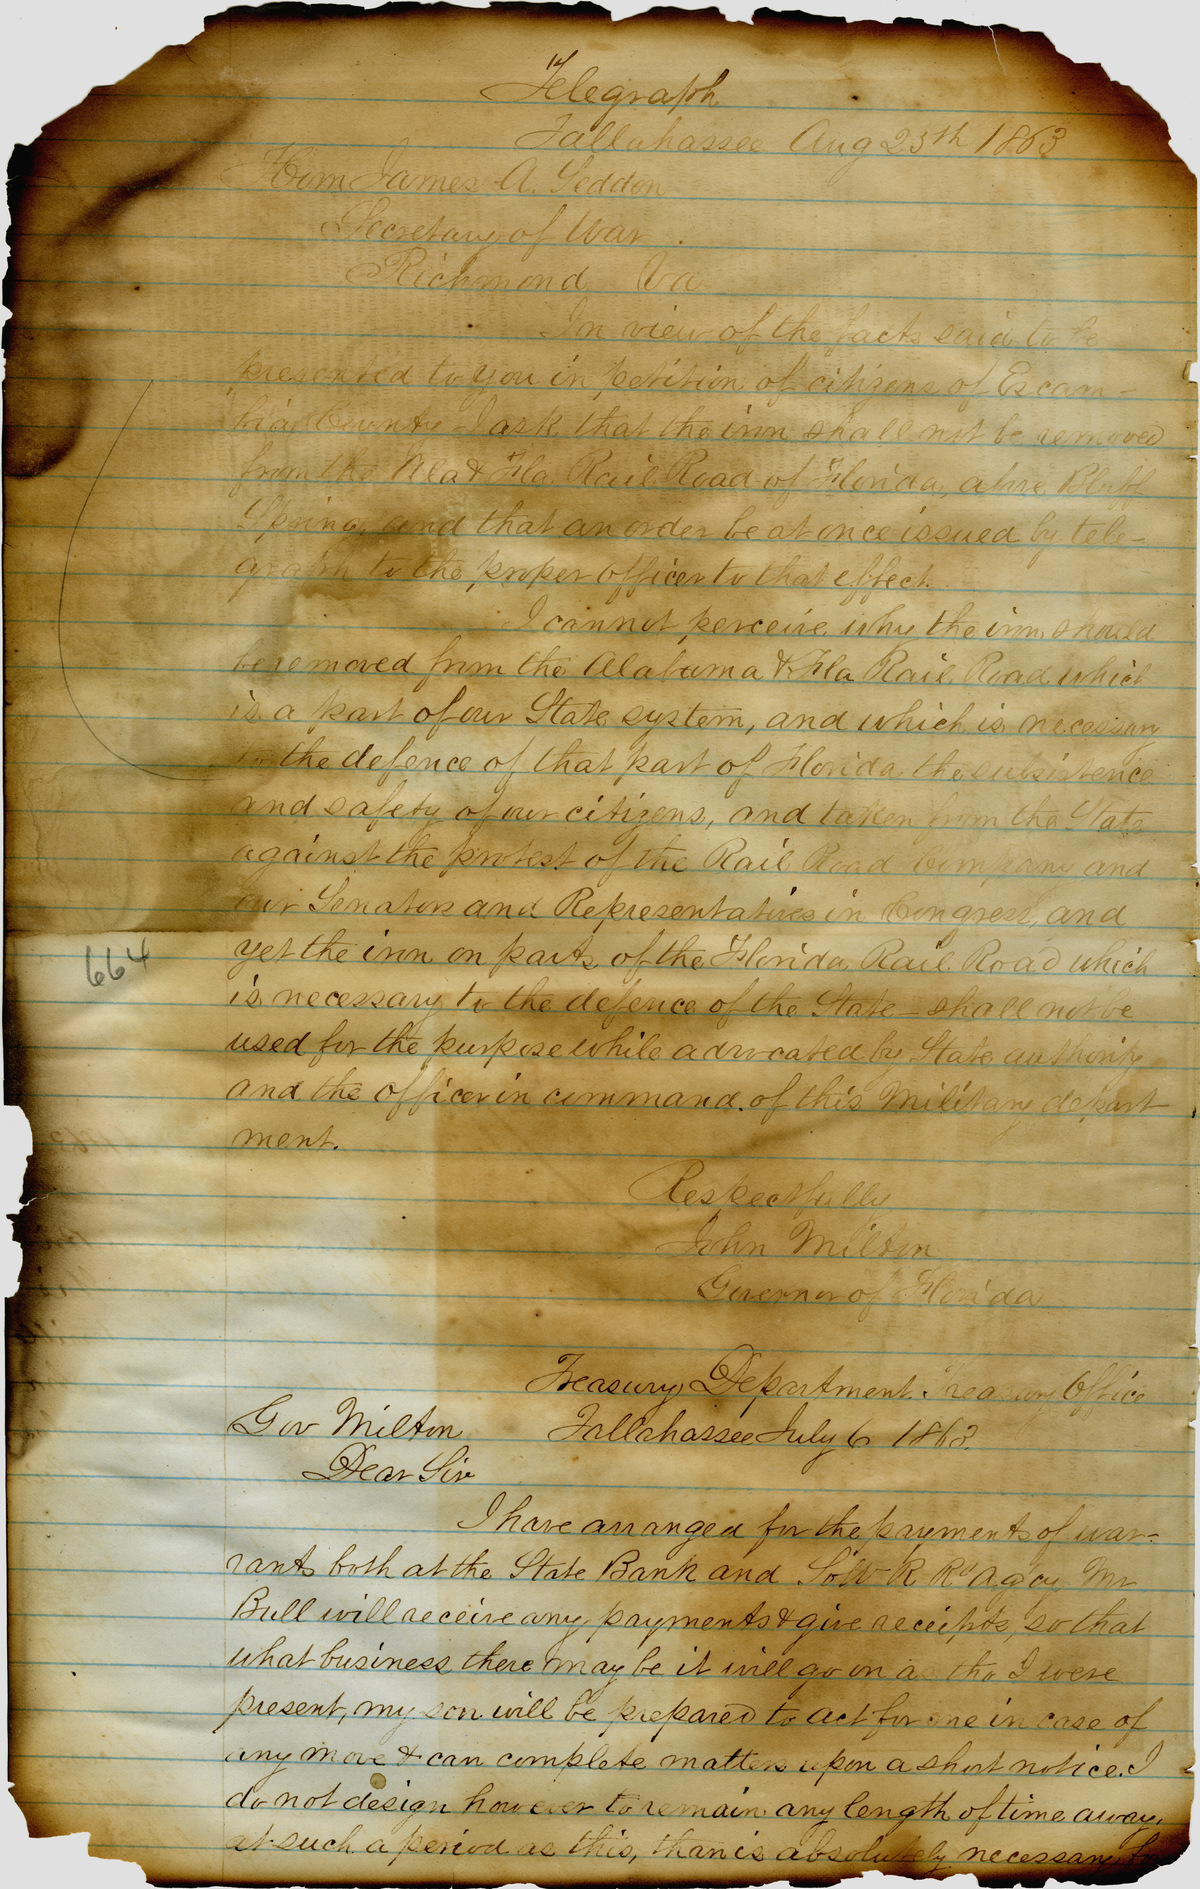 Telegraph
Tallahassee Aug 25th 1863
Hon James A. Seddon
Secretary of War
Richmond Va
In view of the facts said to be
presented to you in petition of citizens of Escam-
bia County I ask that the iron shall not be removed
from the Ala & Fla Rail Road of Florida, above Bluff
Spring, and that an order be at once issued by tele-
graph to the proper officer to that effect.
I cannot perceive why the iron should
be removed from the Alabama & Fla Rail Road which
is a part of our State system, and which is necessary
to the defence of that part of Florida the subsistence
and safety of our citizens, and taken from the State
against the protest of the Rail Road Company and
our Senators and Representatives in Congress, and
yet the iron on parts of the Florida Rail Road which
is necessary to the defence of the State - shall not be
used for the purpose while advocated by State authority
and the officer in command of this Military depart
ment.
664
Respectfully
John Milton
Governor of Florida
Treasury Department Treasury Office
Gov Milton Tallahassee July 6 1863.
Dear Sir
I have arranged for the payments of war-
rants both at the State Bank and R Rd Agcy Mr
Bull will receive any payments & give receipts, so that
what business there may be it will go on as tho I were
present, my son will be prepared to act for me in case of
any move & can complete matters upon a short notice. I
do not design however to remain any length of time away,
at such a period as this, than is absolutely necessary